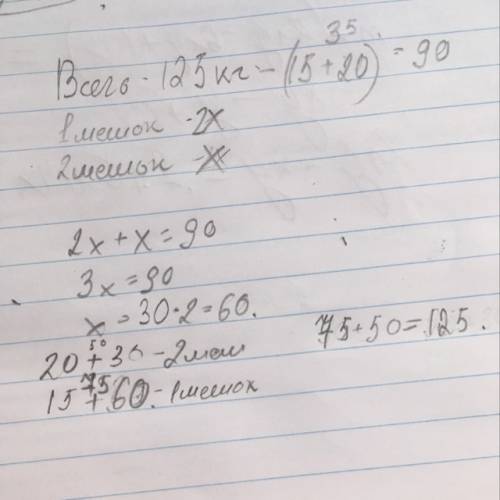 35
Всего - 125 кг - (15 + 20) = 90
1 мешок - 2x
2 мешок - x
2x + x = 90
3x = 90
x = 30 · 2 = 60.
50
20 + 30 - 2 меш
75
15 + 60 - 1 мешок
75 + 50 = 125.